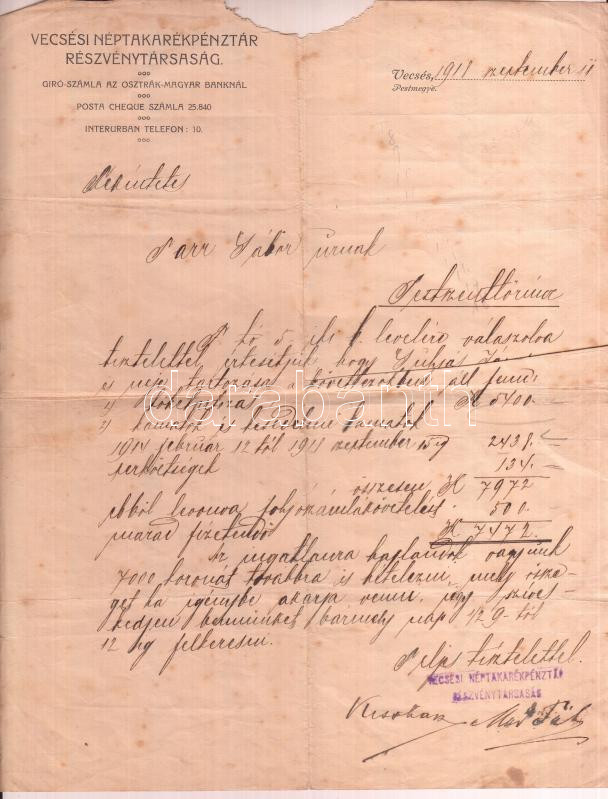 VECSÉSI NÉPTAKARÉKPÉNZTÁR
RÉSZVÉNYTÁRSASÁG.
GIRÓ-SZÁMLA AZ OSZTRÁK-MAGYAR BANKNÁL
POSTA CHEQUE SZÁMLA 25.840
INTERURBAN TELEFON: 10.
Vecsés, 1918 szeptember 11
Pestmegye.
Tekintetes
Parr Gábor úrnak
Pestszentlőrinc
F. hó 5. levelére válaszolva
tisztelettel értesítjük hogy
és neje tartozása a következőkben áll fenn:
1) tőketartozás K 5400.-
2) kamatok és késedelmi kamatok
1914 február 12 től 1918 szeptember 15 ig 2438.-
perköltségek 134.-
összesen K 7972
ebből levonva folyószámlakövetelés 500.-
marad fizetendő K 7472.-
Az ingatlanra hajlandók vagyunk
7000 koronát továbbra is hitelezni, mely össze-
get ha igénybe akarja venni, úgy szíves-
kedjen bennünket bármely nap 1/2 9-től
12 ig felkeresni.
Teljes tisztelettel
VECSÉSI NÉPTAKARÉKPÉNZTÁR
RÉSZVÉNYTÁRSASÁG
darabanth